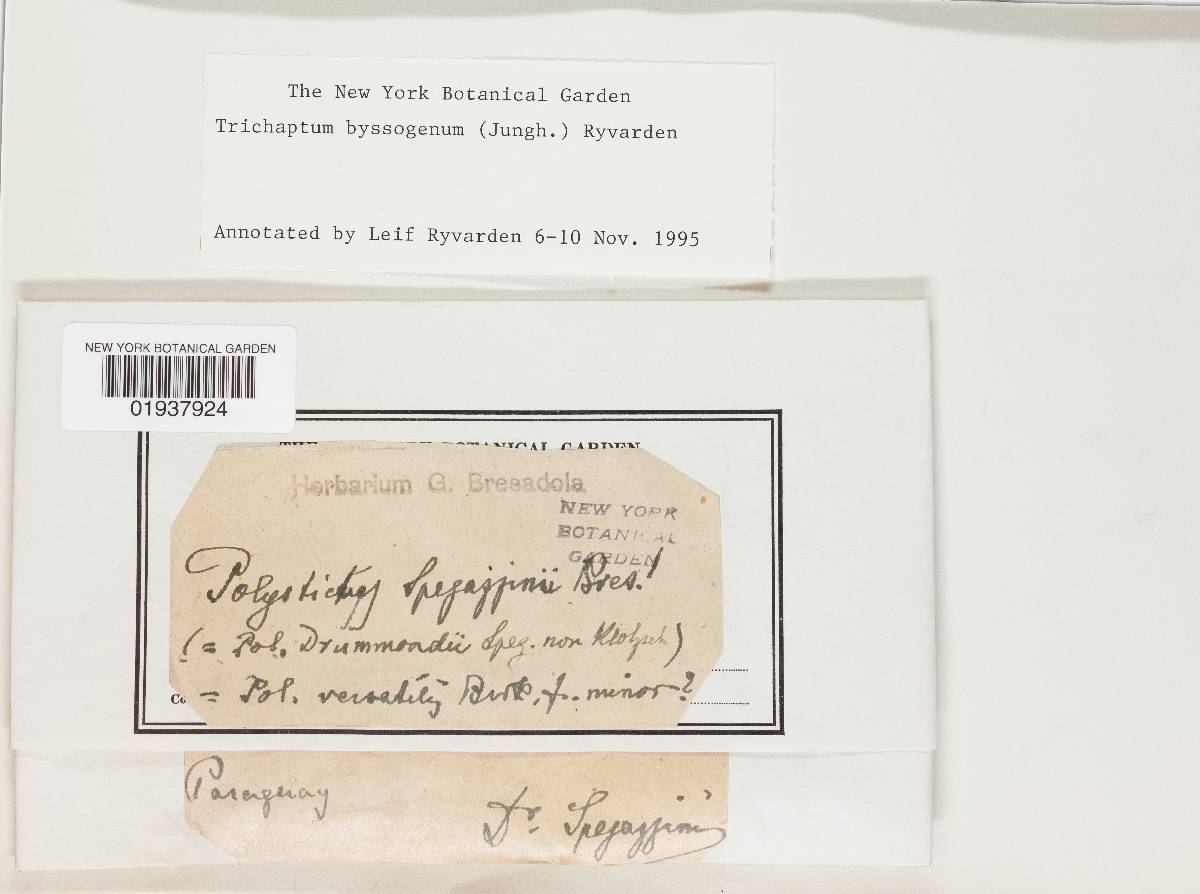 The New York Botanical Garden
Trichaptum byssogenum (Jungh.) Ryvarden
Annotated by Leif Ryvarden 6-10 Nov. 1995
NEW YORK BOTANICAL GARDEN
01937924
BOTANICAL GARDEN
Herbarium G. Bresadola
NEW YORK
BOTANICAL
GARDEN
Polystictus Spegazzinii Bres.!
(= Pol. Drummondii Speg. non Klotzsch)
= Pol. versatilis Berk. f. minor?
Paraguay
Dr. Spegazzini